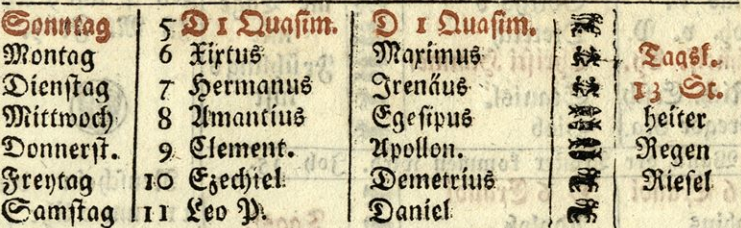 Sonntag 5 D 1 Quasim. D 1 Quasim.
Montag 6 Xixtus Maximus Tagsl.
Dienstag 7 Hermanus Irenäus 13 St.
Mittwoch 8 Amantius Egesipus heiter
Donnerst. 9 Clement. Apollon. Regen
Freytag 10 Ezechiel Demetrius Riesel
Samstag 11 Leo P. Daniel